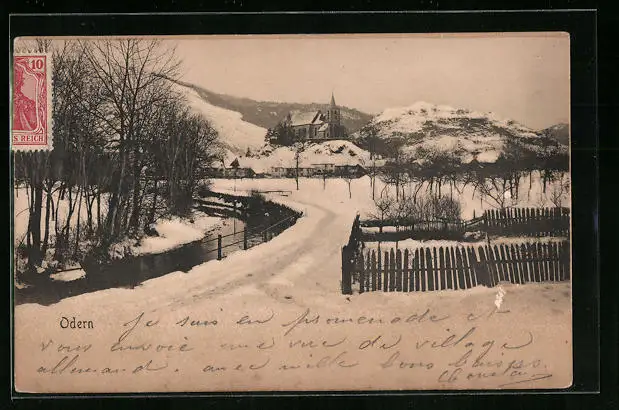 10
S REICH
Odern
Je suis en promenade et
vous envoie une vue de village
allemand. avec mille bons baisers.